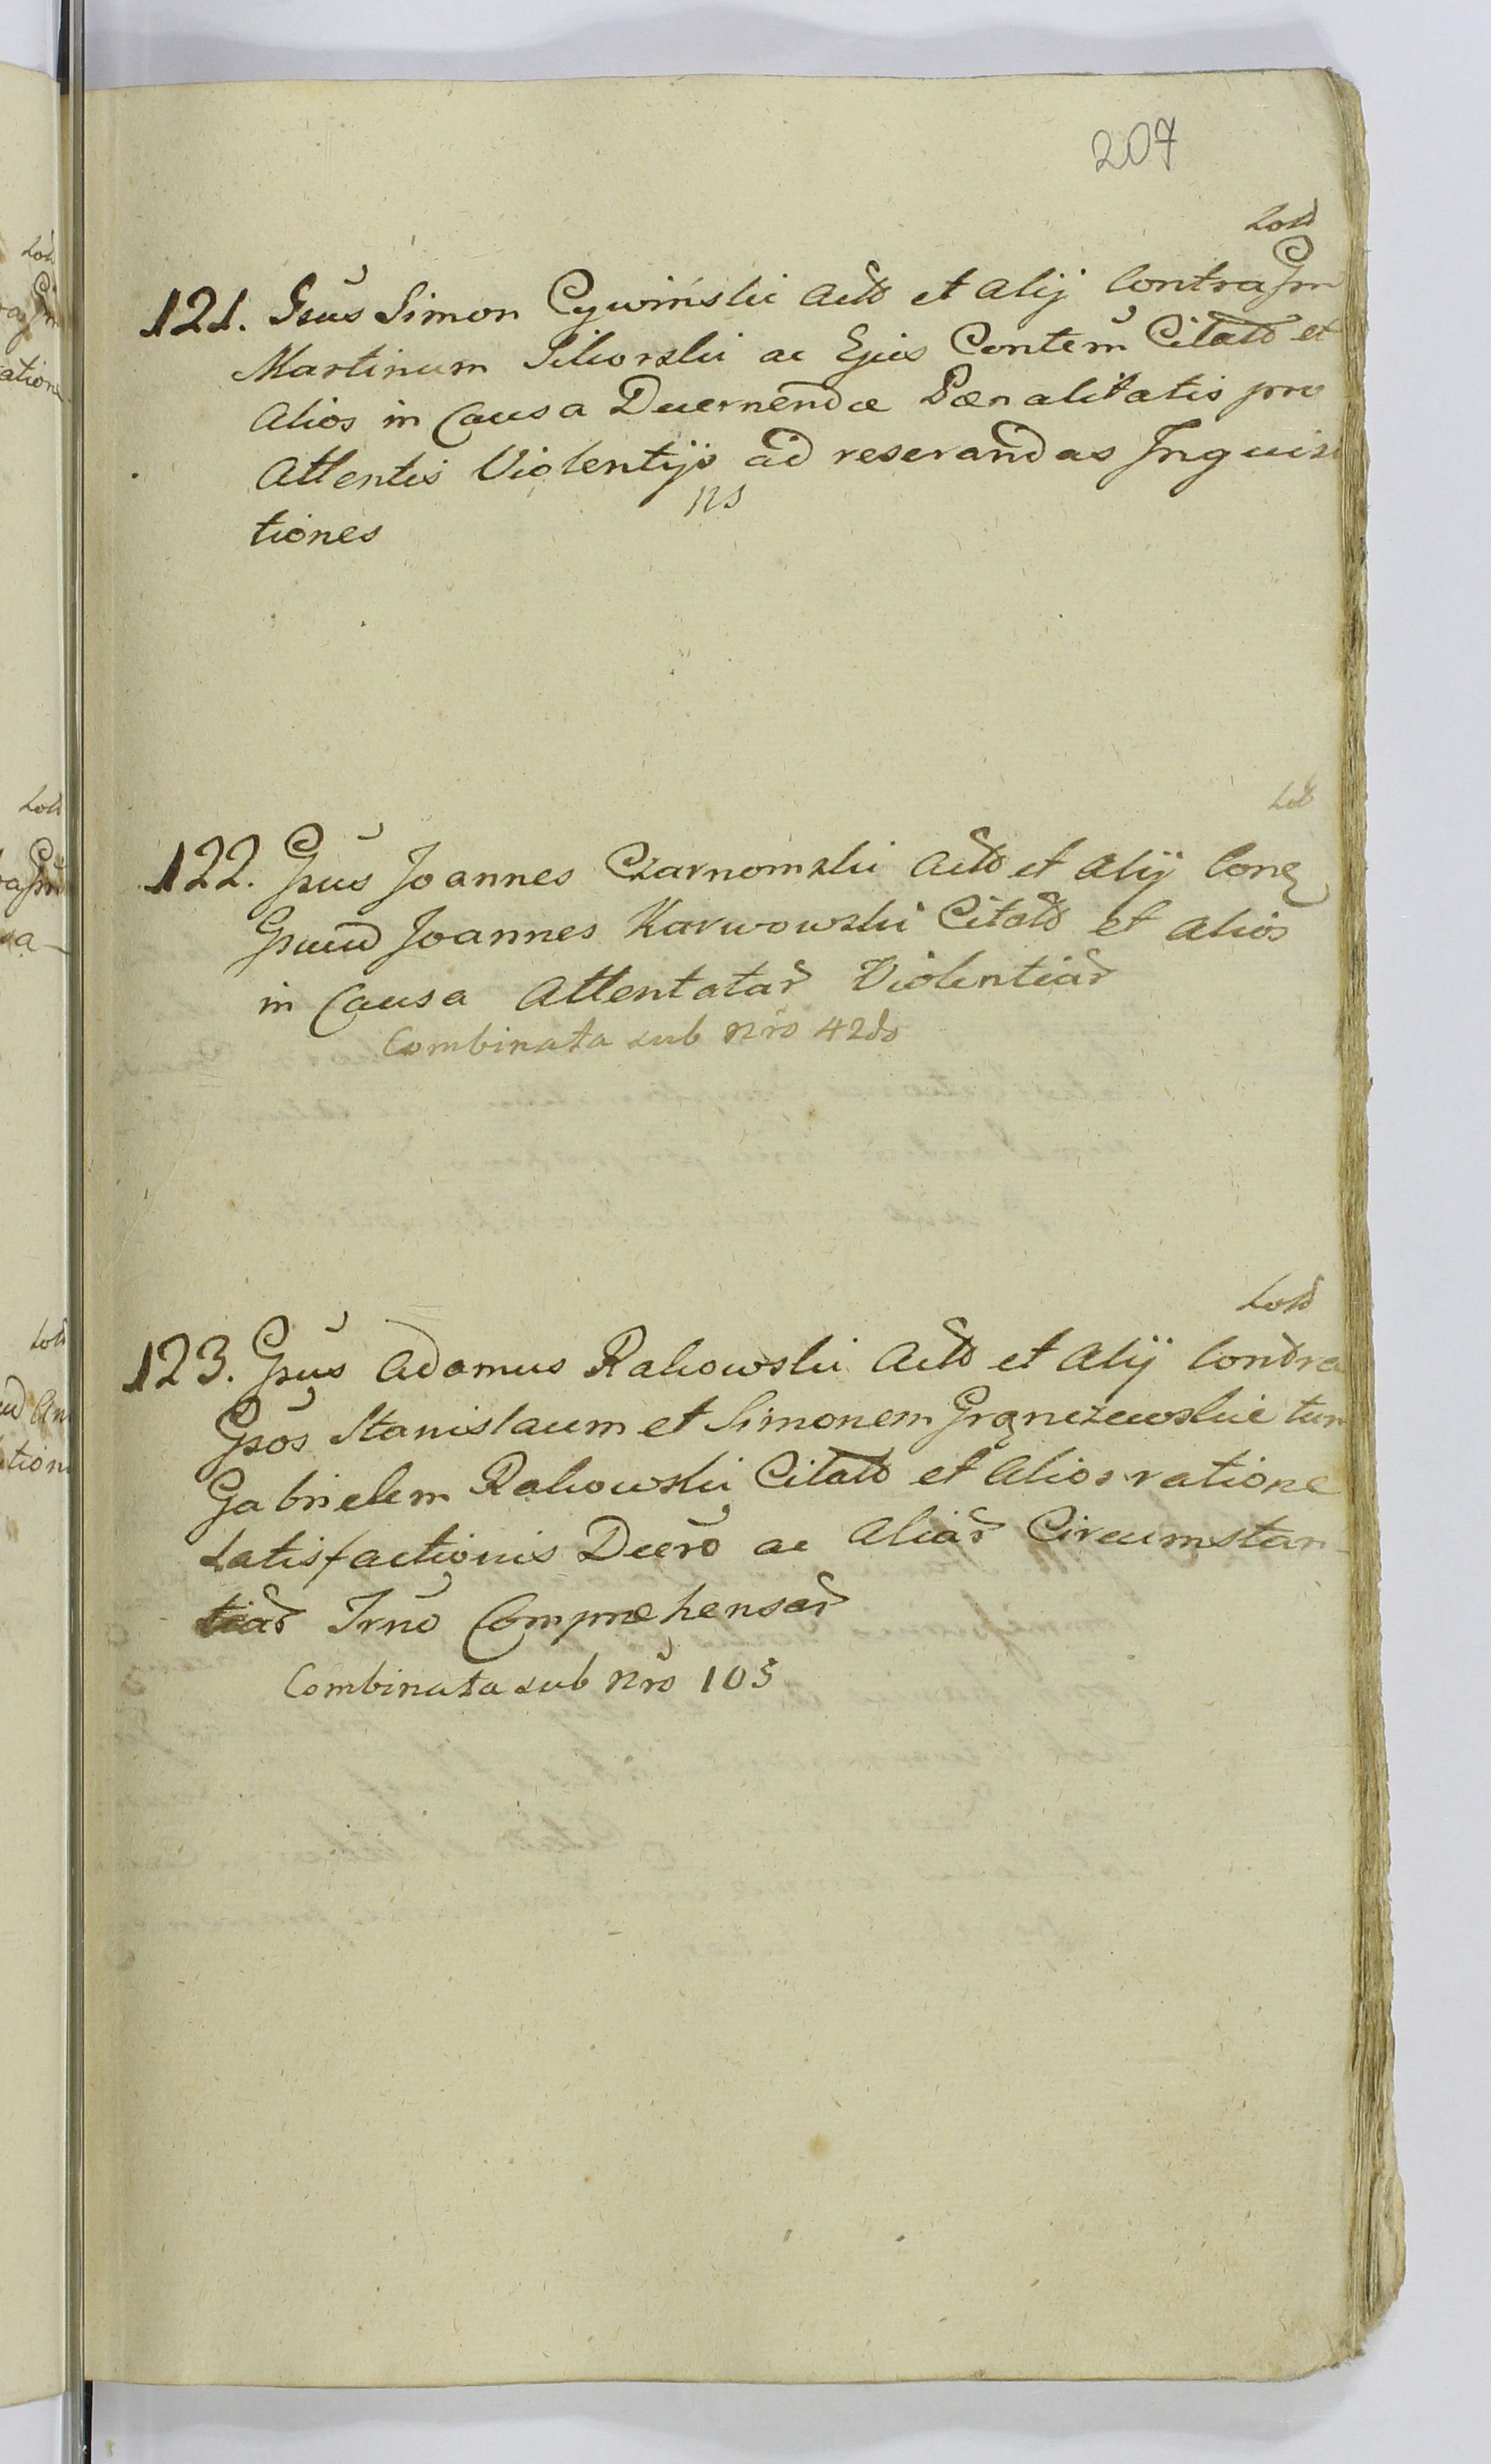 207
121. Gsus Simon Cywiński Actd et Alij Contra Gsm
Martinum Sikorski ac Ejus Contem Citatd et
Alios in Causa Decernendæ Pænalitatis pro
Attentis Violentijs ad reserandas Inquisi
tiones
ns
122. Gsus Joannes Czarnomski Actd et Alij Con
Gsum Joannes Karwowski Citatd et Alios
in Causa Attentatar Violentiar
Combinata sub Nro 42do
123. Gsus Adamus Rakowski Actd et Alij Contra
Gsos Stanislaum et Simonem Grąnczewskie tum
Gabrielem Rakowski Citatd et Alios ratione
Satisfactionis Decro ac Aliar Circumstan-
tiar Trno Comprehensar
Combinata sub Nro 105